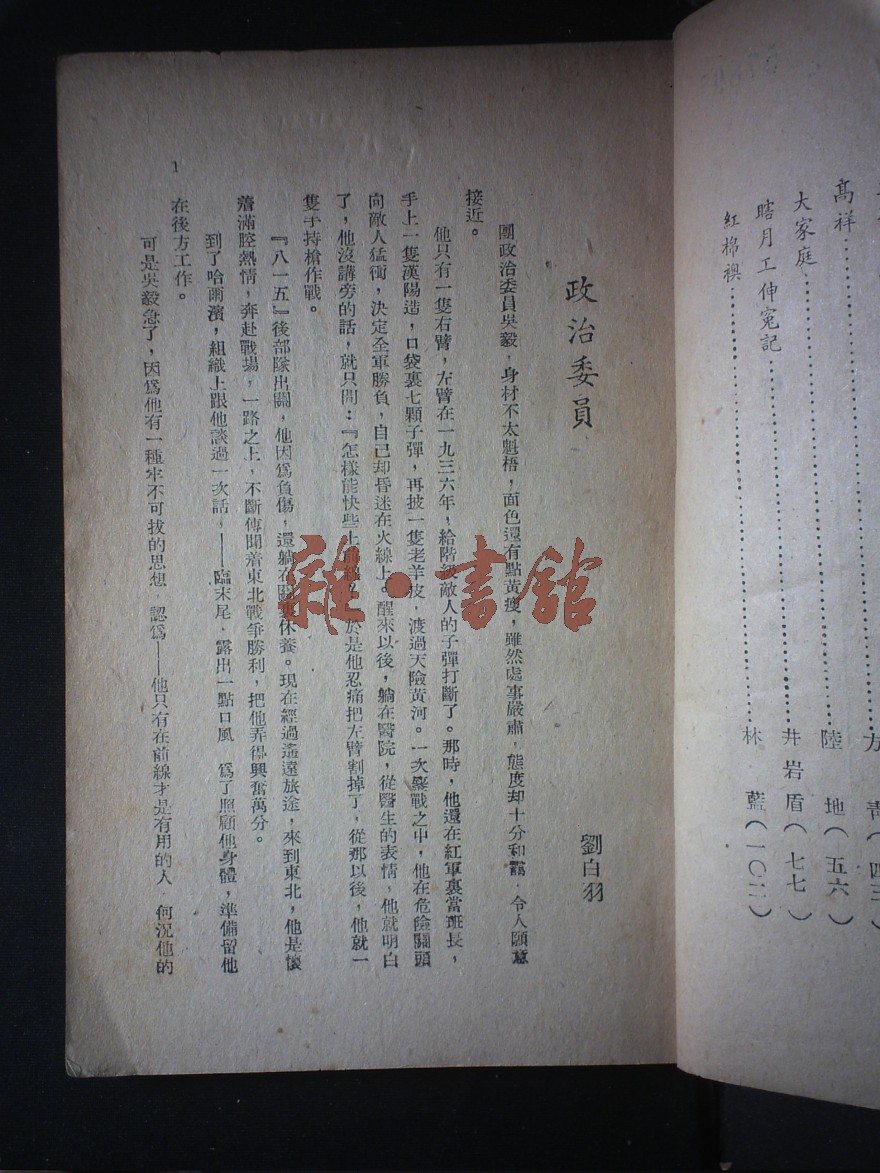 高祥
陸　地(五六)
大家庭
井岩盾(七七)
瞎月工伸冤記
紅棉襖
林　藍(一〇二)
政治委員
劉白羽
團政治委員吳毅，身材不太魁梧，面色還有點黃瘦，雖然處事嚴肅，態度却十分和靄，令人願意
接近。
他只有一隻右臂，左臂在一九三六年，給階級敵人的子彈打斷了。那時，他還在紅軍裏當班長，
手上一隻漢陽造，口袋裏七顆子彈，再披一隻老羊皮，渡過天險黃河。一次鏖戰之中，他在危險關頭
向敵人猛衝，決定全軍勝負，自己却昏迷在火線上。醒來以後，躺在醫院，從醫生的表情，他就明白
了，他沒講旁的話，就只問：『怎樣能快些上前線？』於是他忍痛把左臂割掉了，從那以後，他就一
隻手持槍作戰。
『八一五』後部隊出關，他因爲負傷，還躺在關裏休養。現在經過遙遠旅途，來到東北，他是懷
着滿腔熱情，奔赴戰場，一路之上，不斷傳聞着東北戰爭勝利，把他弄得興奮萬分。
到了哈爾濱，組織上跟他談過一次話，——臨末尾，露出一點口風，爲了照顧他身體，準備留他
在後方工作。
可是吳毅急了，因爲他有一種牢不可拔的思想，認爲——他只有在前線才是有用的人，何況他的
1
雜·書館